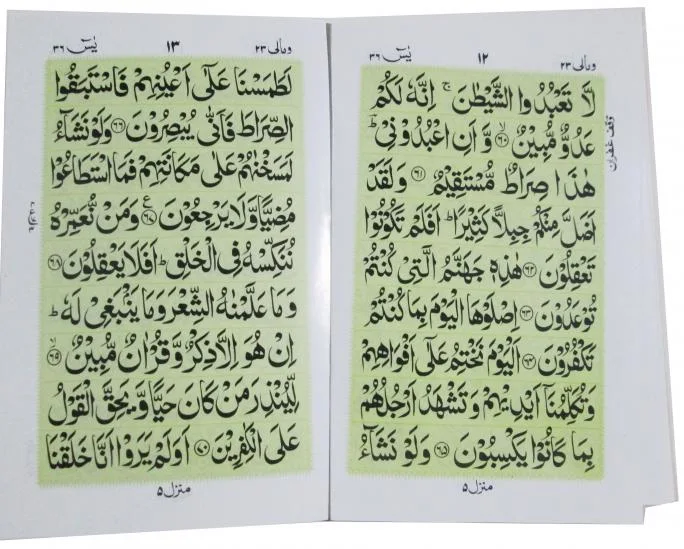 ومالی ۲۳ ۱۲ یٰسٓ ۳۶
لَّا تَعْبُدُوا الشَّيْطٰنَ ۚ اِنَّهٗ لَكُمْ
عَدُوٌّ مُّبِيْنٌ ۙ﴿۶۰﴾ وَّ اَنِ اعْبُدُوْنِیْ ؕ
هٰذَا صِرَاطٌ مُّسْتَقِيْمٌ ﴿۶۱﴾ وَ لَقَدْ
اَضَلَّ مِنْكُمْ جِبِلًّا كَثِيْرًا ؕ اَفَلَمْ تَكُوْنُوْا
تَعْقِلُوْنَ ﴿۶۲﴾ هٰذِهٖ جَهَنَّمُ الَّتِیْ كُنْتُمْ
تُوْعَدُوْنَ ﴿۶۳﴾ اِصْلَوْهَا الْيَوْمَ بِمَا كُنْتُمْ
تَكْفُرُوْنَ ﴿۶۴﴾ اَلْيَوْمَ نَخْتِمُ عَلٰۤى اَفْوَاهِهِمْ
وَ تُكَلِّمُنَاۤ اَيْدِيْهِمْ وَ تَشْهَدُ اَرْجُلُهُمْ
بِمَا كَانُوْا يَكْسِبُوْنَ ﴿۶۵﴾ وَ لَوْ نَشَآءُ
منزل ۵
وقف غفران
ومالی ۲۳ ۱۳ یٰسٓ ۳۶
لَطَمَسْنَا عَلٰۤى اَعْيُنِهِمْ فَاسْتَبَقُوا
الصِّرَاطَ فَاَنّٰى يُبْصِرُوْنَ ﴿۶۶﴾ وَ لَوْ نَشَآءُ
لَمَسَخْنٰهُمْ عَلٰى مَكَانَتِهِمْ فَمَا اسْتَطَاعُوْا
مُضِيًّا وَّ لَا يَرْجِعُوْنَ ﴿۶۷﴾ وَ مَنْ نُّعَمِّرْهُ
نُنَكِّسْهُ فِی الْخَلْقِ ؕ اَفَلَا يَعْقِلُوْنَ ﴿۶۸﴾
وَ مَا عَلَّمْنٰهُ الشِّعْرَ وَ مَا يَنْۢبَغِیْ لَهٗ ؕ
اِنْ هُوَ اِلَّا ذِكْرٌ وَّ قُرْاٰنٌ مُّبِيْنٌ ۙ﴿۶۹﴾
لِّيُنْذِرَ مَنْ كَانَ حَيًّا وَّ يَحِقَّ الْقَوْلُ
عَلَى الْكٰفِرِيْنَ ﴿۷۰﴾ اَوَ لَمْ يَرَوْا اَنَّا خَلَقْنَا
منزل ۵